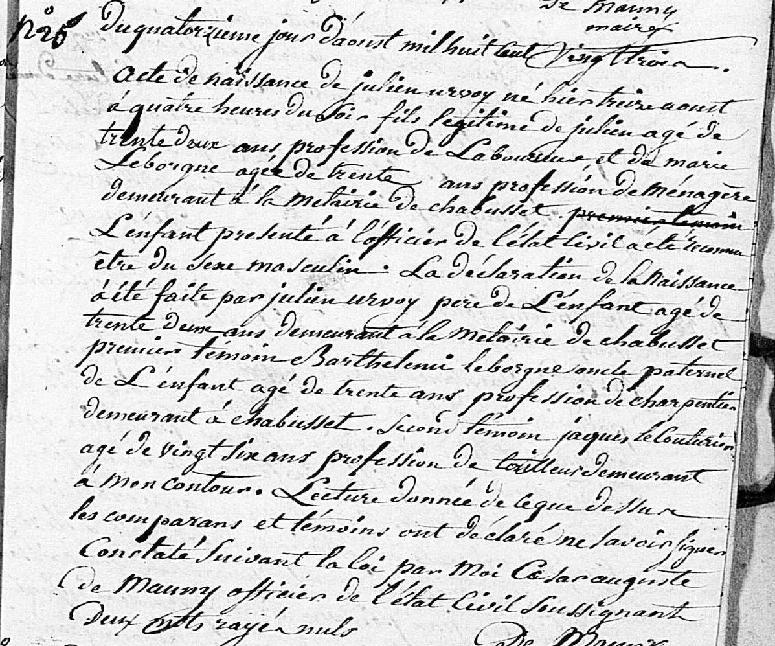 De Mauny
maire
N° 26
Du quatorzieme jour D'aoust mil huit Cent vingt trois.
Acte de naissance de julien urvoy né hier treize aoust
à quatre heures du soir fils legitime de julien agé de
trente deux ans profession de Laboureur et de marie
Leborgne agée de trente ans profession de Ménagère
demeurant à la metairie de chabusset premier témoin
L'enfant presenté à l'officier de l'état Civil a été reconnu
être du sexe masculin. La déclaration de la Naissance
à été faite par julien urvoy pere de L'enfant agé de
trente deux ans demeurant à la Metairie de chabusset
premier témoin Barthelemi leborgne oncle paternel
de L'enfant agé de trente ans profession de charpentier
demeurant à chabusset. Second témoin jaques le Couturier
agé de vingt six ans profession de tailleur demeurant
à Moncontour. Lecture donnée de ce que dessus
les comparans et témoins ont déclaré ne savoir signer
Constaté Suivant la loi par Moi Cesar auguste
De Mauny officier de l'état Civil Soussignant
Deux mots rayés nuls
De Mauny